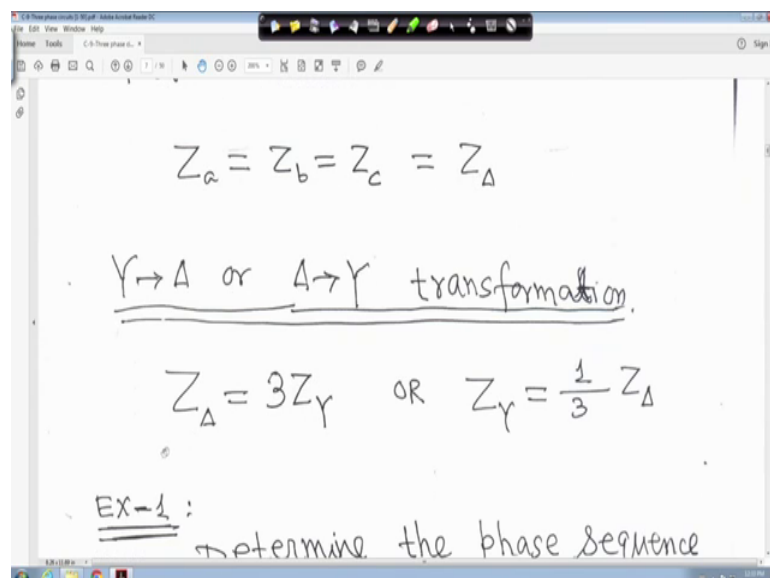 C-9-Three phase circuits [1-90].pdf - Adobe Acrobat Reader DC
File Edit View Window Help
Home Tools C-9-Three phase ci... × Sign
Z_a = Z_b = Z_c = Z_Δ
Y→Δ or Δ→Y transformation.
Z_Δ = 3Z_Y OR Z_Y = 1/3 Z_Δ
EX-1:
Determine the phase sequence